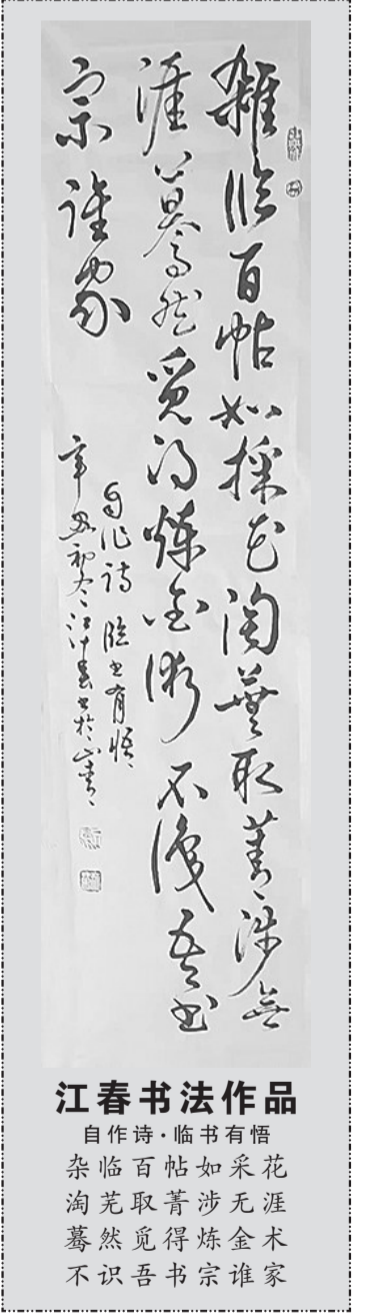 雜临百帖如採花淘蕪取菁涉無
涯蓦然觅得煉金術不識吾书
宗誰家
自作詩临书有悟
辛丑初冬江春书於
江春书法作品
自作诗·临书有悟
杂临百帖如采花
淘芜取菁涉无涯
蓦然觅得炼金术
不识吾书宗谁家